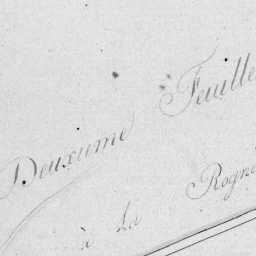 Deuxieme Feuille
à La Rogne